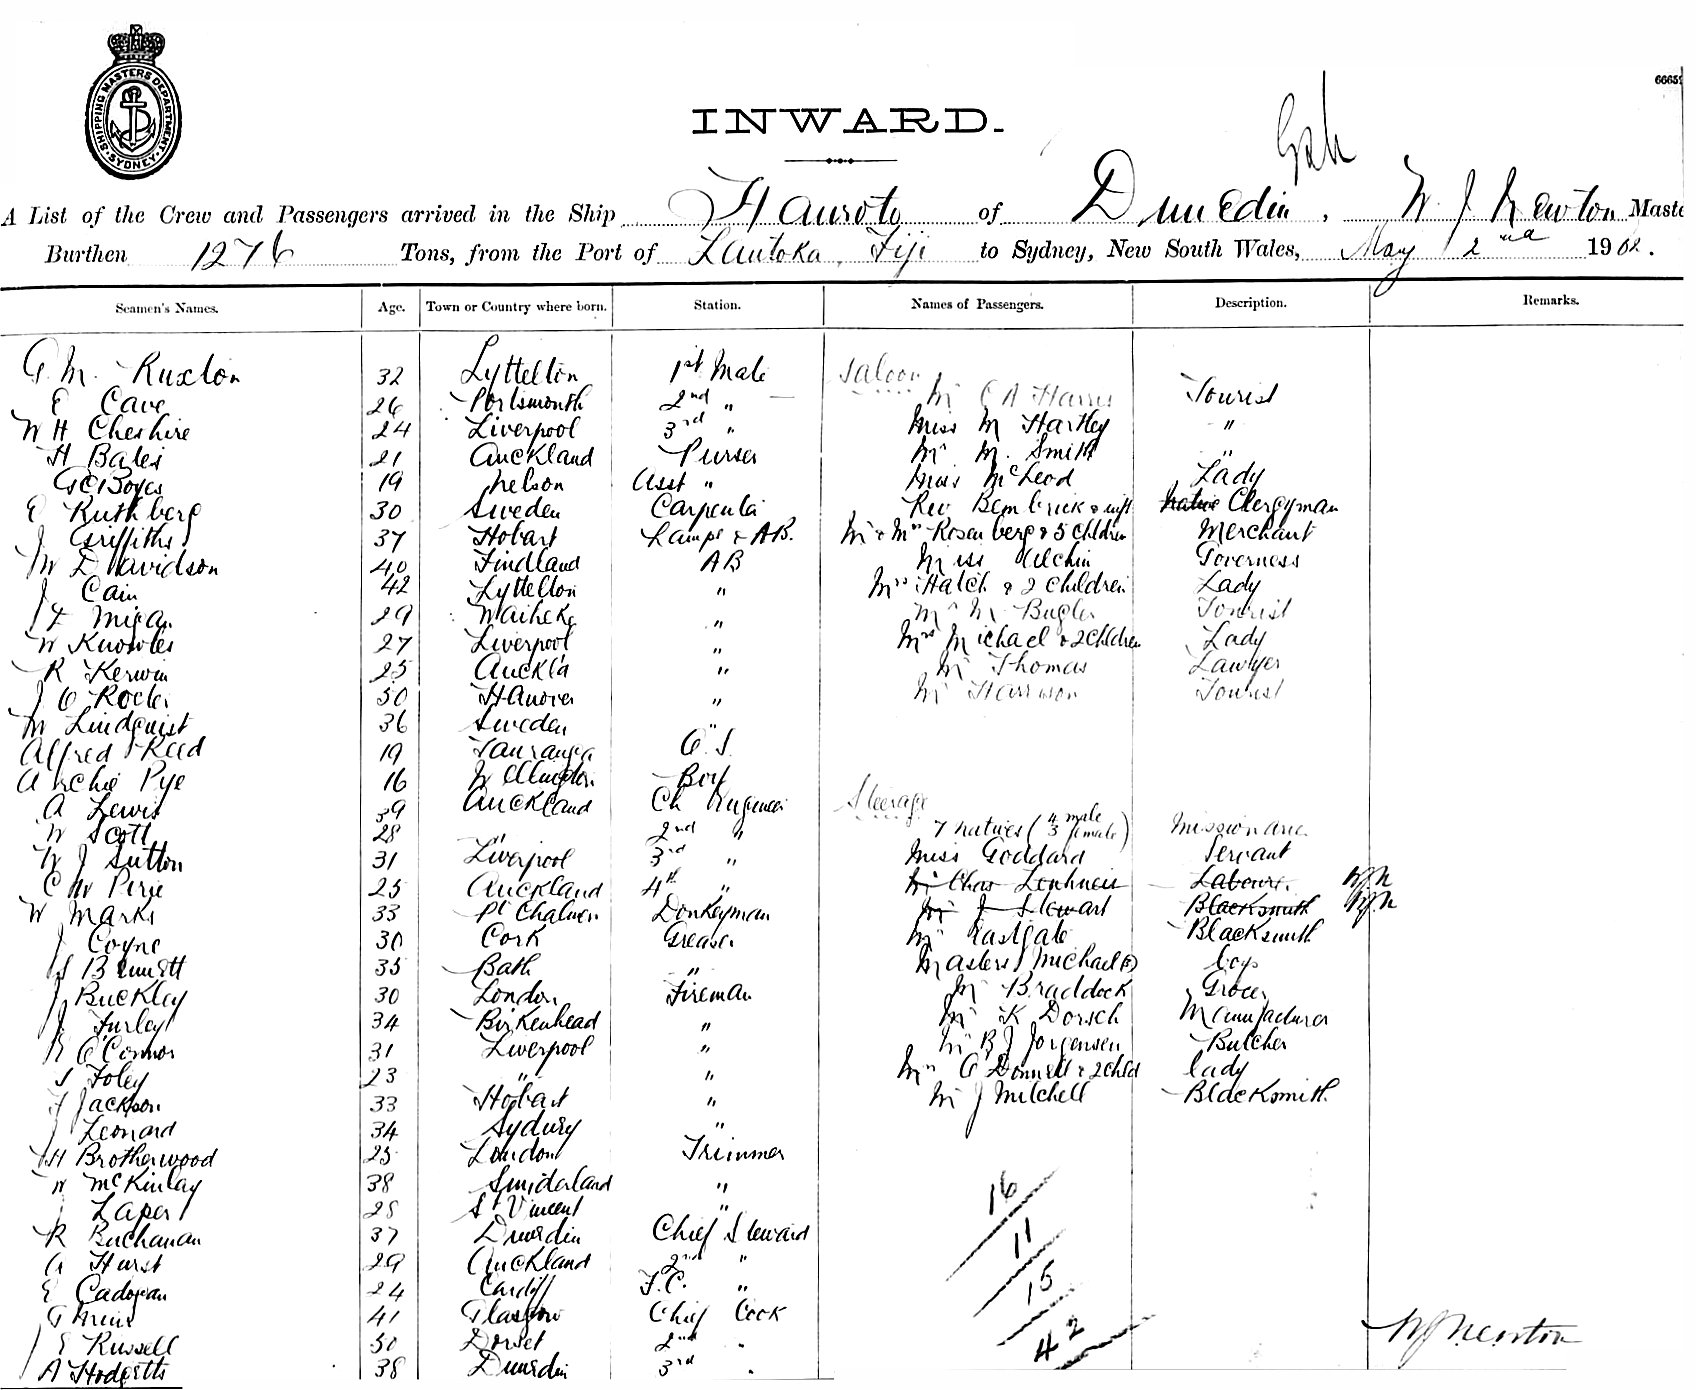 SHIPPING MASTERS DEPARTMENT
SYDNEY
6665
INWARD.
A List of the Crew and Passengers arrived in the Ship Hauroto of Dunedin, W. J. Newton Maste
Burthen 1276 Tons, from the Port of Lautoka, Fiji to Sydney, New South Wales, May 2nd 1902.
Seamen's Names. Age. Town or Country where born. Station. Names of Passengers. Description. Remarks.
G. M. Ruxton 32 Lyttelton 1st Mate Saloon
E Cave 26 Portsmouth 2nd " Mr C A Harris Tourist
W H Cheshire 24 Liverpool 3rd " Miss M Hartley "
H Bates 21 Auckland Purser Mr M. Smith "
G C Boyes 19 Nelson Asst " Miss McLeod Lady
E Ruthberg 30 Sweden Carpenter Rev Bembrick & wife Native Clergyman
J Griffiths 37 Hobart Lamps & AB. Mr & Mrs Rosenberg & 5 children Merchant
M Davidson 40 Findland AB Miss Alchin Governess
J Cain 42 Lyttelton " Mrs Hatch & 2 children Lady
29 Waiheke " Mr M Bugler Tourist
W Knowles 27 Liverpool " Mrs Michael & 2 Children Lady
R Kerwin 25 Auckld " Mr Thomas Lawyer
J 50 Hanover " Mr Harrison Tourist
M Lindquist 36 Sweden "
Alfred Reed 19 Tauranga O.S.
Archie Pye 16 Wellington Boy
A Lewis 39 Auckland Ch Engineer Steerage
W Scott 28 " 2nd " 7 natives (4 male 3 female)
W J Sutton 31 Liverpool 3rd " Miss Goddard Servant
C W Pirie 25 Auckland 4th " Mr Chas Labourer WJN
W Marks 33 Pt Chalmers Donkeyman Mr J Stewart Blacksmith WJN
J Coyne 30 Cork Greaser Mr Eastgate Blacksmith
S Bennett 35 Bath " Masters Michael (2) boys
J Buckley 30 London Fireman Mr Braddock Grocer
J. Furley 34 Birkenhead " Mr K Dorsch Manufacturer
R O'Connor 31 Liverpool " Mr B J Jorgensen Butcher
S Foley 23 " " Mrs O Donnell & 2 child lady
F Jackson 33 Hobart " Mr J Mitchell Blacksmith
J Leonard 34 Sydney "
H Brotherwood 25 London Trimmer
W McKinlay 38 Sunderland "
J Laper 28 St Vincent "
R Buchanan 37 Dunedin Chief Steward
A Hurst 29 Auckland 2nd "
E Cadogan 24 Cardiff F.C. "
G 41 Glasgow Chief Cook
E Russell 50 Dorset 2nd "
A Hodgetts 38 Dunedin 3rd "
16
11
15
42
WJ Newton